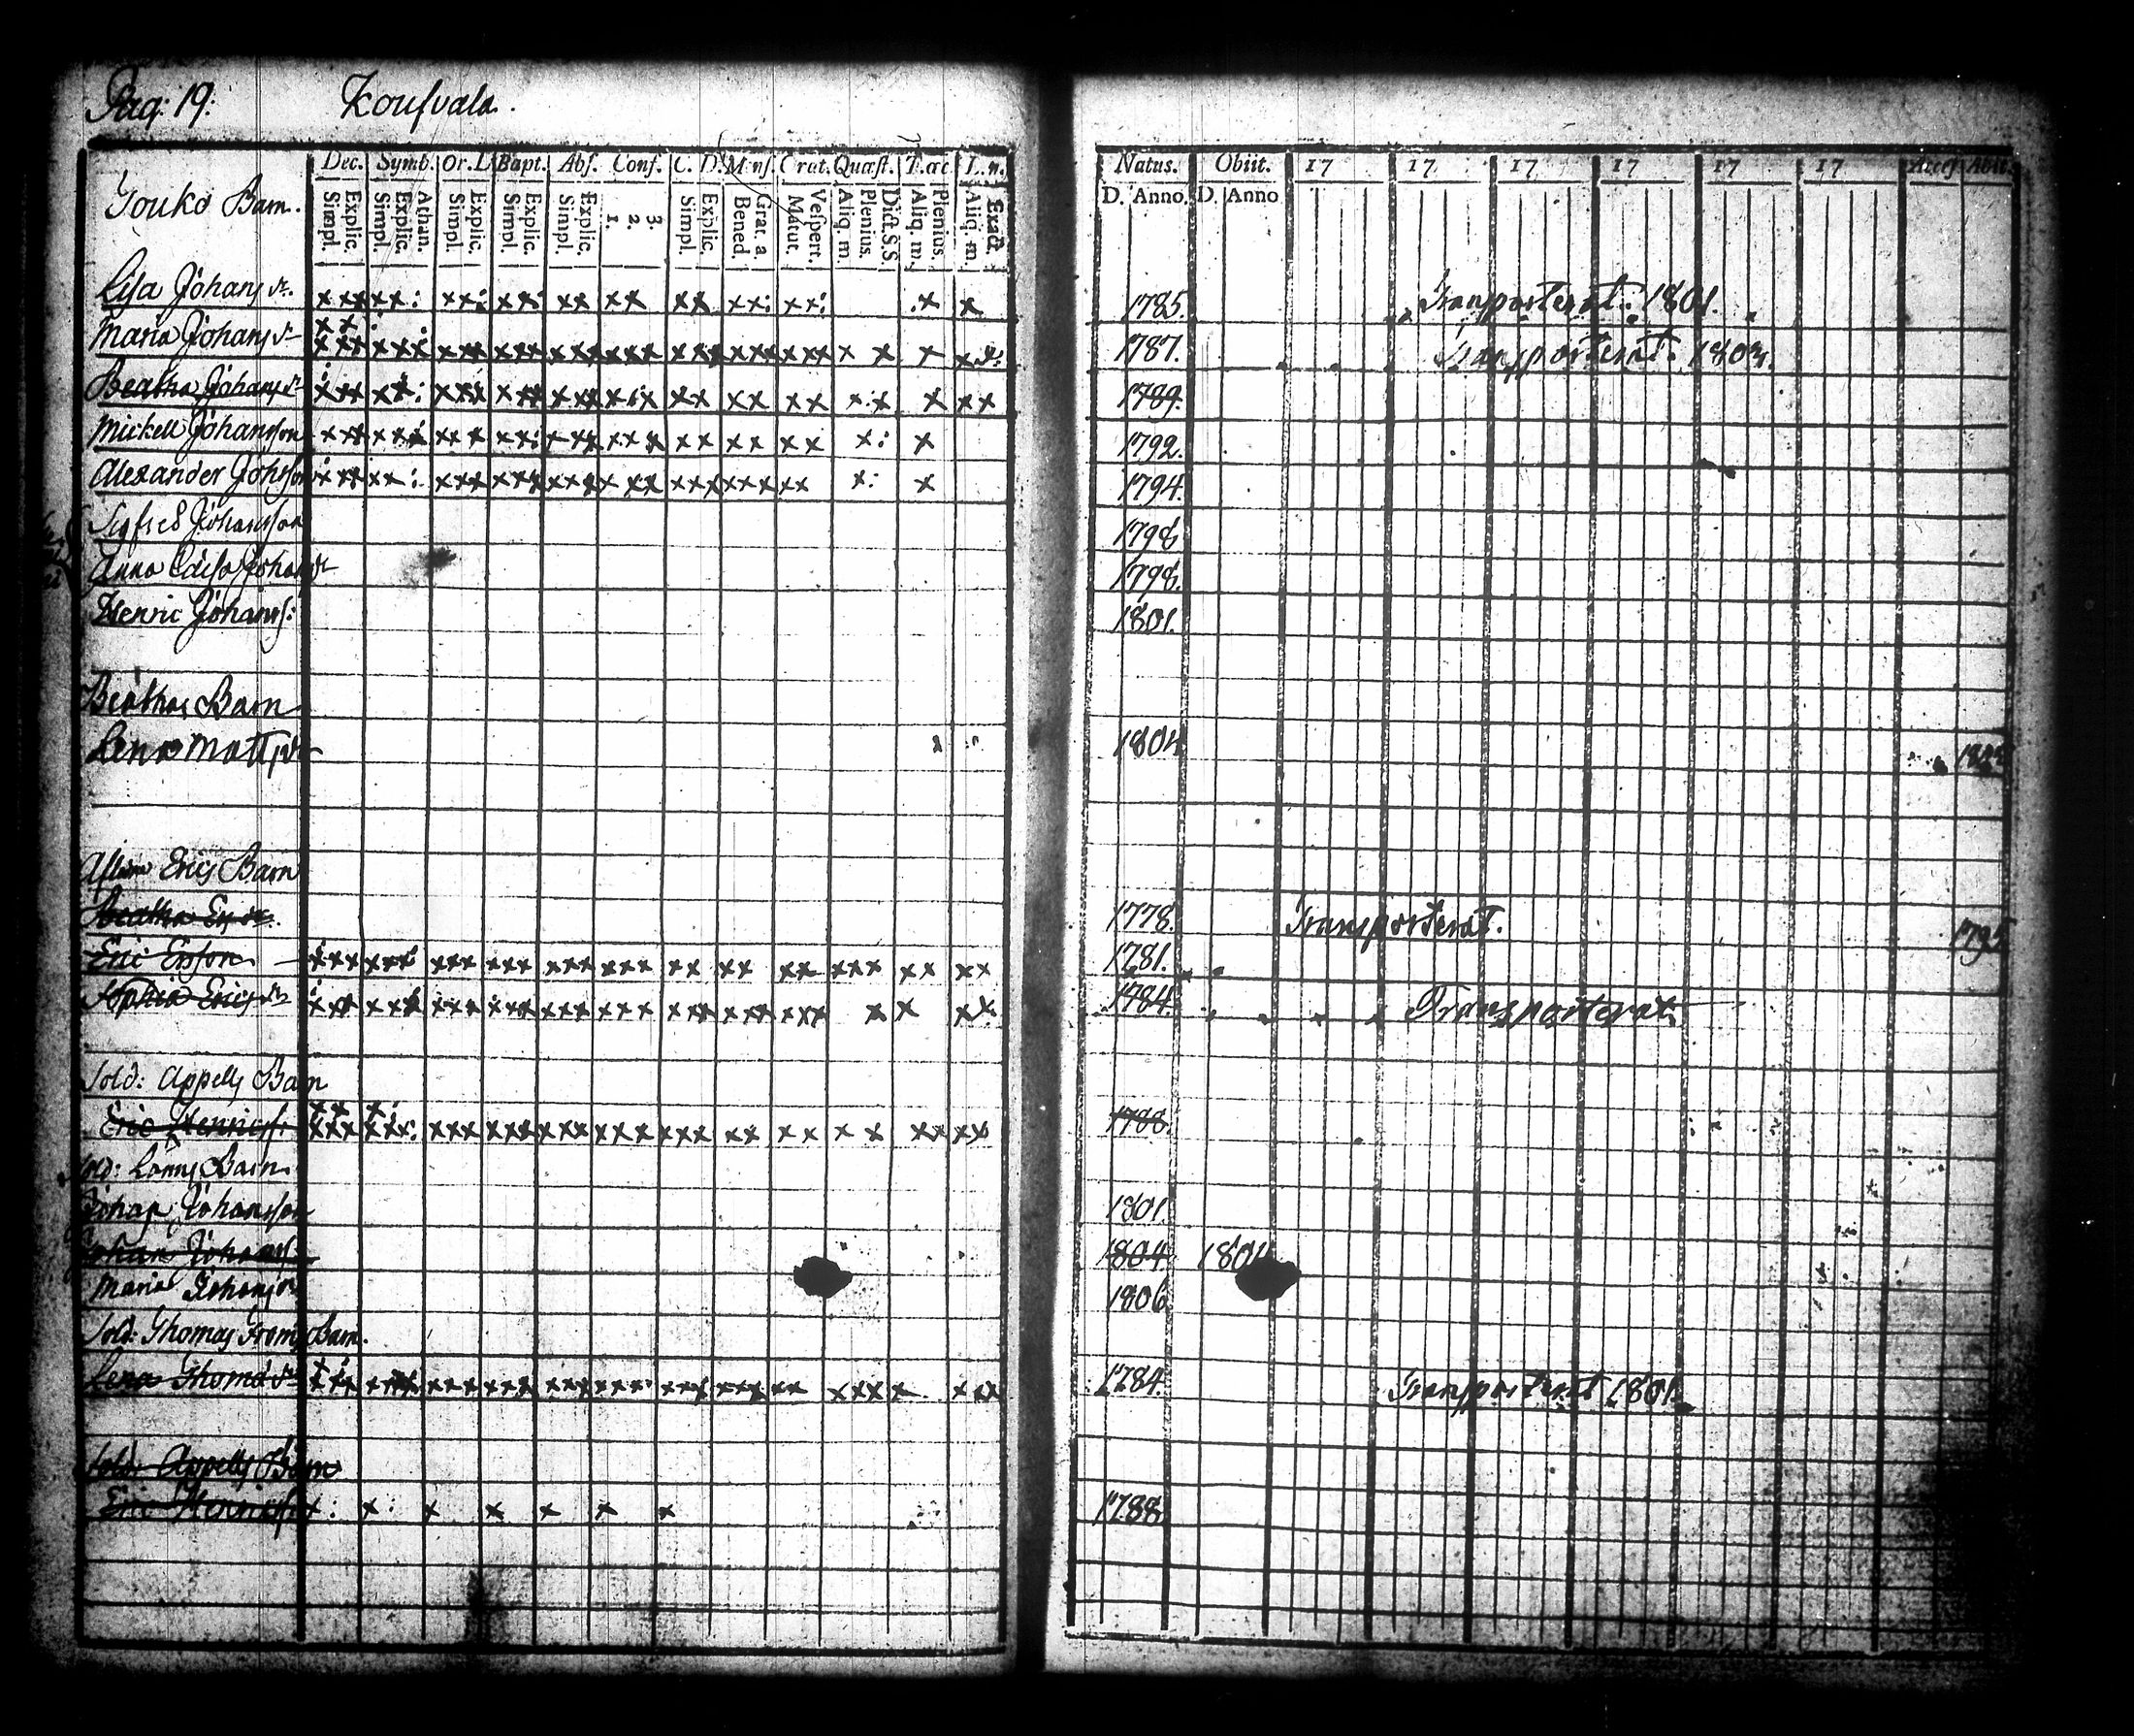 Pag: 19. Koufvala.
Dec. Symb. Or. D Bapt. Abs. Conf. C. D. Mens. Orat. Quæst. T. œc L. n. Natus. Obiit. 17 17 17 17 17 17 Access Abiit.
Simpl. Explic. Simpl. Explic. Athan. Simpl. Explic. Simpl Explic. Simpl. Explic. 1. 2. 3. Simpl. Explic. Bened. Grat. a Matut. Vespert. Aliq. m. Plenius. Dict. S. S Aliq. m. Plenius. Aliq. m Exact. D. Anno. D. Anno
Jouko Barn.
Lisa Johans dr. 1785. Transporterat. 1801.
Maria Johans dr 1787. Transporterat. 1803.
Beatha Johans dr 1789.
Mickell Johansson 1792.
Alexander Johsson 1794.
Sigfred Johansson 1798
Anna Caisa Johans dr 1798.
Henric Johanss: 1801.
Beathas Barn
Lena Matts dr 1804
Erics Barn
Beatha Ers dr. 1778. Transporterat. 1795
Eric Ersson 1781.
Sophia Erics dr 1784. Transporterat.
Sold: Appells Barn
Eric Henricss: 1788.
Sold: Lönns Barn
Johan Johansson 1801.
Johan Johanss: 1804. 1804
Maria Johans dr 1806
Sold: Thomas Froms Barn.
Lena Thomæ dr 1784. Transporterat 1801.
Sold: Appells Barn
Eric Henricss: 1788.